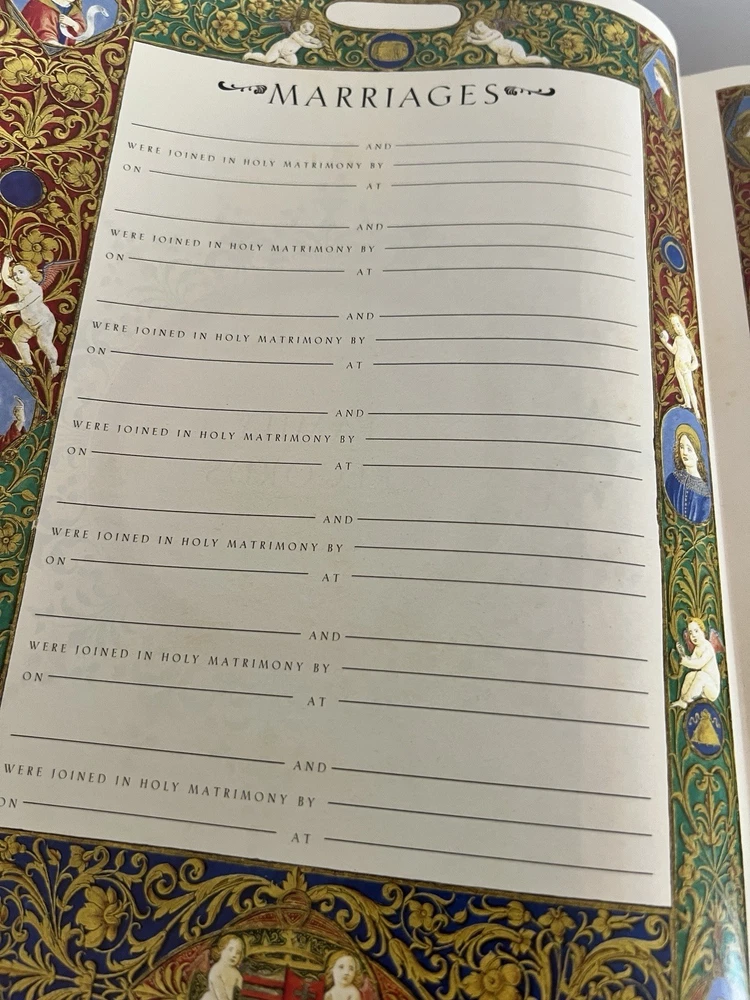 MARRIAGES
AND
WERE JOINED IN HOLY MATRIMONY BY
ON AT
AND
WERE JOINED IN HOLY MATRIMONY BY
ON AT
AND
WERE JOINED IN HOLY MATRIMONY BY
ON AT
AND
WERE JOINED IN HOLY MATRIMONY BY
ON AT
AND
WERE JOINED IN HOLY MATRIMONY BY
ON AT
AND
WERE JOINED IN HOLY MATRIMONY BY
ON AT
AND
WERE JOINED IN HOLY MATRIMONY BY
ON AT